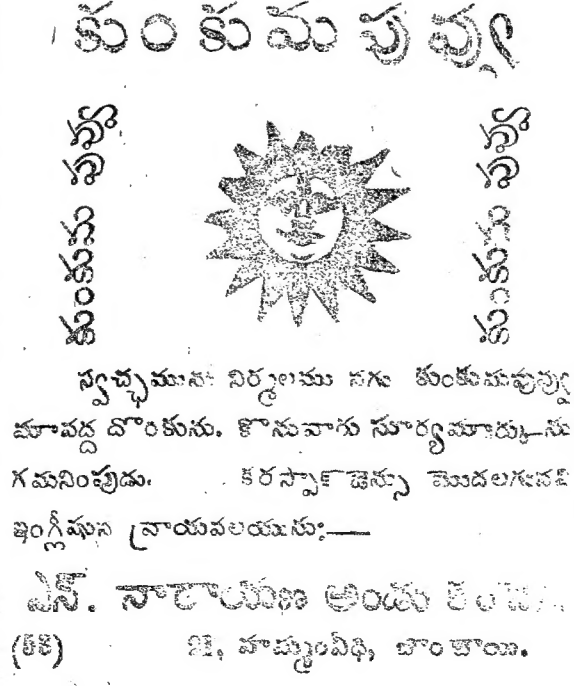 కుంకుమపువ్వు
కుంకుమపువ్వు
కుంకుమపువ్వు
స్వచ్ఛమును నిర్మలము నగు కుంకుమపువ్వు
మావద్ద దొరకును. కొనువారు సూర్యమార్కును
గమనింపుడు. కరస్పాండెన్సు మొదలగునవి
ఇంగ్లీషున వ్రాయవలయును:—
ఎన్. నారాయణ అండు కంపెనీ,
హమ్మంవీధి, బొంబాయి.